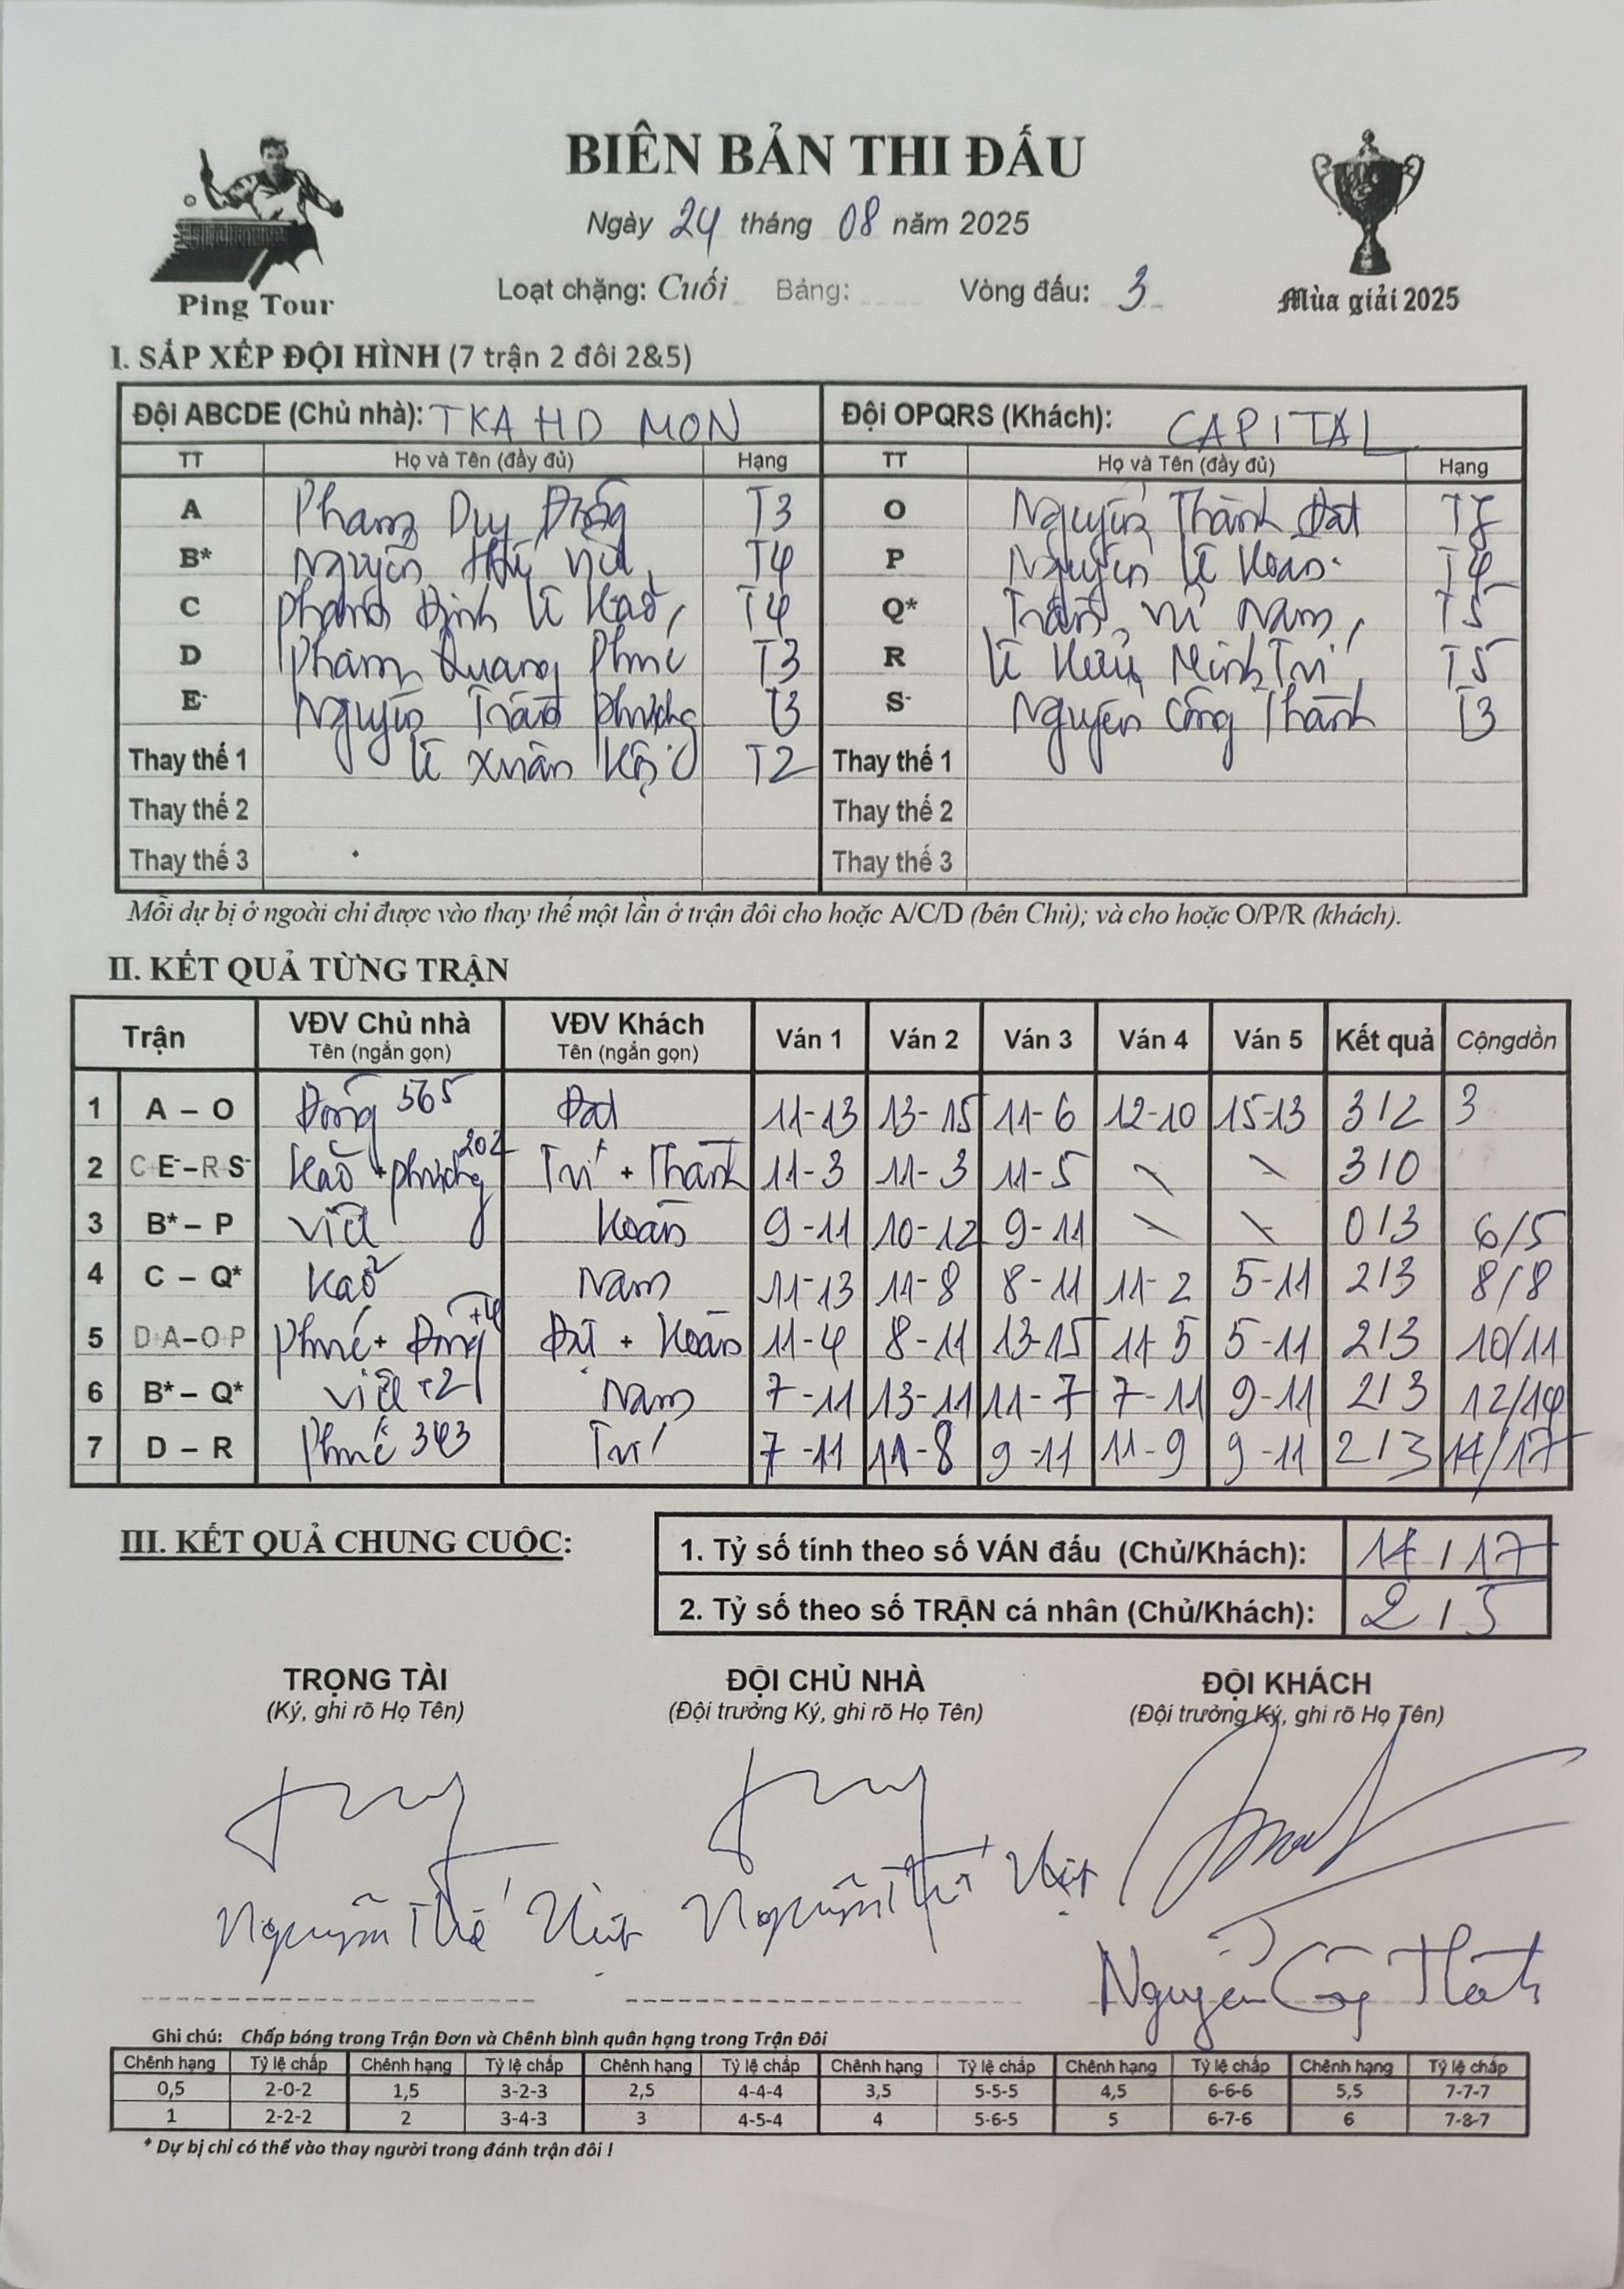 BIÊN BẢN THI ĐẤU
Ngày 24 tháng 08 năm 2025
Ping Tour
Loạt chặng: Cuối Bảng: Vòng đấu: 3
Mùa giải 2025
I. SẮP XẾP ĐỘI HÌNH (7 trận 2 đôi 2&5)
Đội ABCDE (Chủ nhà): TKA HD MON Đội OPQRS (Khách): CAPITAL
TT Họ và Tên (đầy đủ) Hạng TT Họ và Tên (đầy đủ) Hạng
A Phạm Duy Đông T3 O Nguyễn Thành Đạt
B* Nguyễn Thế T4 P Nguyễn Lê Hoàn T4
C Đình Lê T4 Q* Trần Nam T5
D Phạm Quang Phúc T3 R Lê Hữu Minh Trí T5
E- Nguyễn Trần Phương T3 S- Nguyễn Công Thành T3
Thay thế 1 Lê Xuân T2 Thay thế 1
Thay thế 2 Thay thế 2
Thay thế 3 Thay thế 3
Mỗi dự bị ở ngoài chỉ được vào thay thế một lần ở trận đôi cho hoặc A/C/D (bên Chủ); và cho hoặc O/P/R (khách).
II. KẾT QUẢ TỪNG TRẬN
Trận VĐV Chủ nhà VĐV Khách Ván 1 Ván 2 Ván 3 Ván 4 Ván 5 Kết quả Cộngdồn
Tên (ngắn gọn) Tên (ngắn gọn)
1 A – O Đông 565 Đạt 11-13 13-15 11-6 12-10 15-13 3/2 3
2 C+E-–R+S- + Phương 202 Trí + Thành 11-3 11-3 11-5 \ \ 3/0
3 B* – P Hoàn 9-11 10-12 9-11 \ \ 0/3 6/5
4 C – Q* Nam 11-13 11-8 8-11 11-2 5-11 2/3 8/8
5 D+A–O+P Phúc + Đông +4 Đạt + Hoàn 11-4 8-11 13-15 11-5 5-11 2/3 10/11
6 B* – Q* +2 Nam 7-11 13-11 11-7 7-11 9-11 2/3 12/14
7 D – R Phúc 343 Trí 7-11 11-8 9-11 11-9 9-11 2/3 14/17
III. KẾT QUẢ CHUNG CUỘC:
1. Tỷ số tính theo số VÁN đấu (Chủ/Khách): 14/17
2. Tỷ số theo số TRẬN cá nhân (Chủ/Khách): 2/5
TRỌNG TÀI ĐỘI CHỦ NHÀ ĐỘI KHÁCH
(Ký, ghi rõ Họ Tên) (Đội trưởng Ký, ghi rõ Họ Tên) (Đội trưởng Ký, ghi rõ Họ Tên)
Nguyễn Thế Nguyễn Thế
Nguyễn Công Thành
Ghi chú: Chấp bóng trong Trận Đơn và Chênh bình quân hạng trong Trận Đôi
Chênh hạng Tỷ lệ chấp Chênh hạng Tỷ lệ chấp Chênh hạng Tỷ lệ chấp Chênh hạng Tỷ lệ chấp Chênh hạng Tỷ lệ chấp Chênh hạng Tỷ lệ chấp
0,5 2-0-2 1,5 3-2-3 2,5 4-4-4 3,5 5-5-5 4,5 6-6-6 5,5 7-7-7
1 2-2-2 2 3-4-3 3 4-5-4 4 5-6-5 5 6-7-6 6 7-8-7
* Dự bị chỉ có thể vào thay người trong đánh trận đôi !